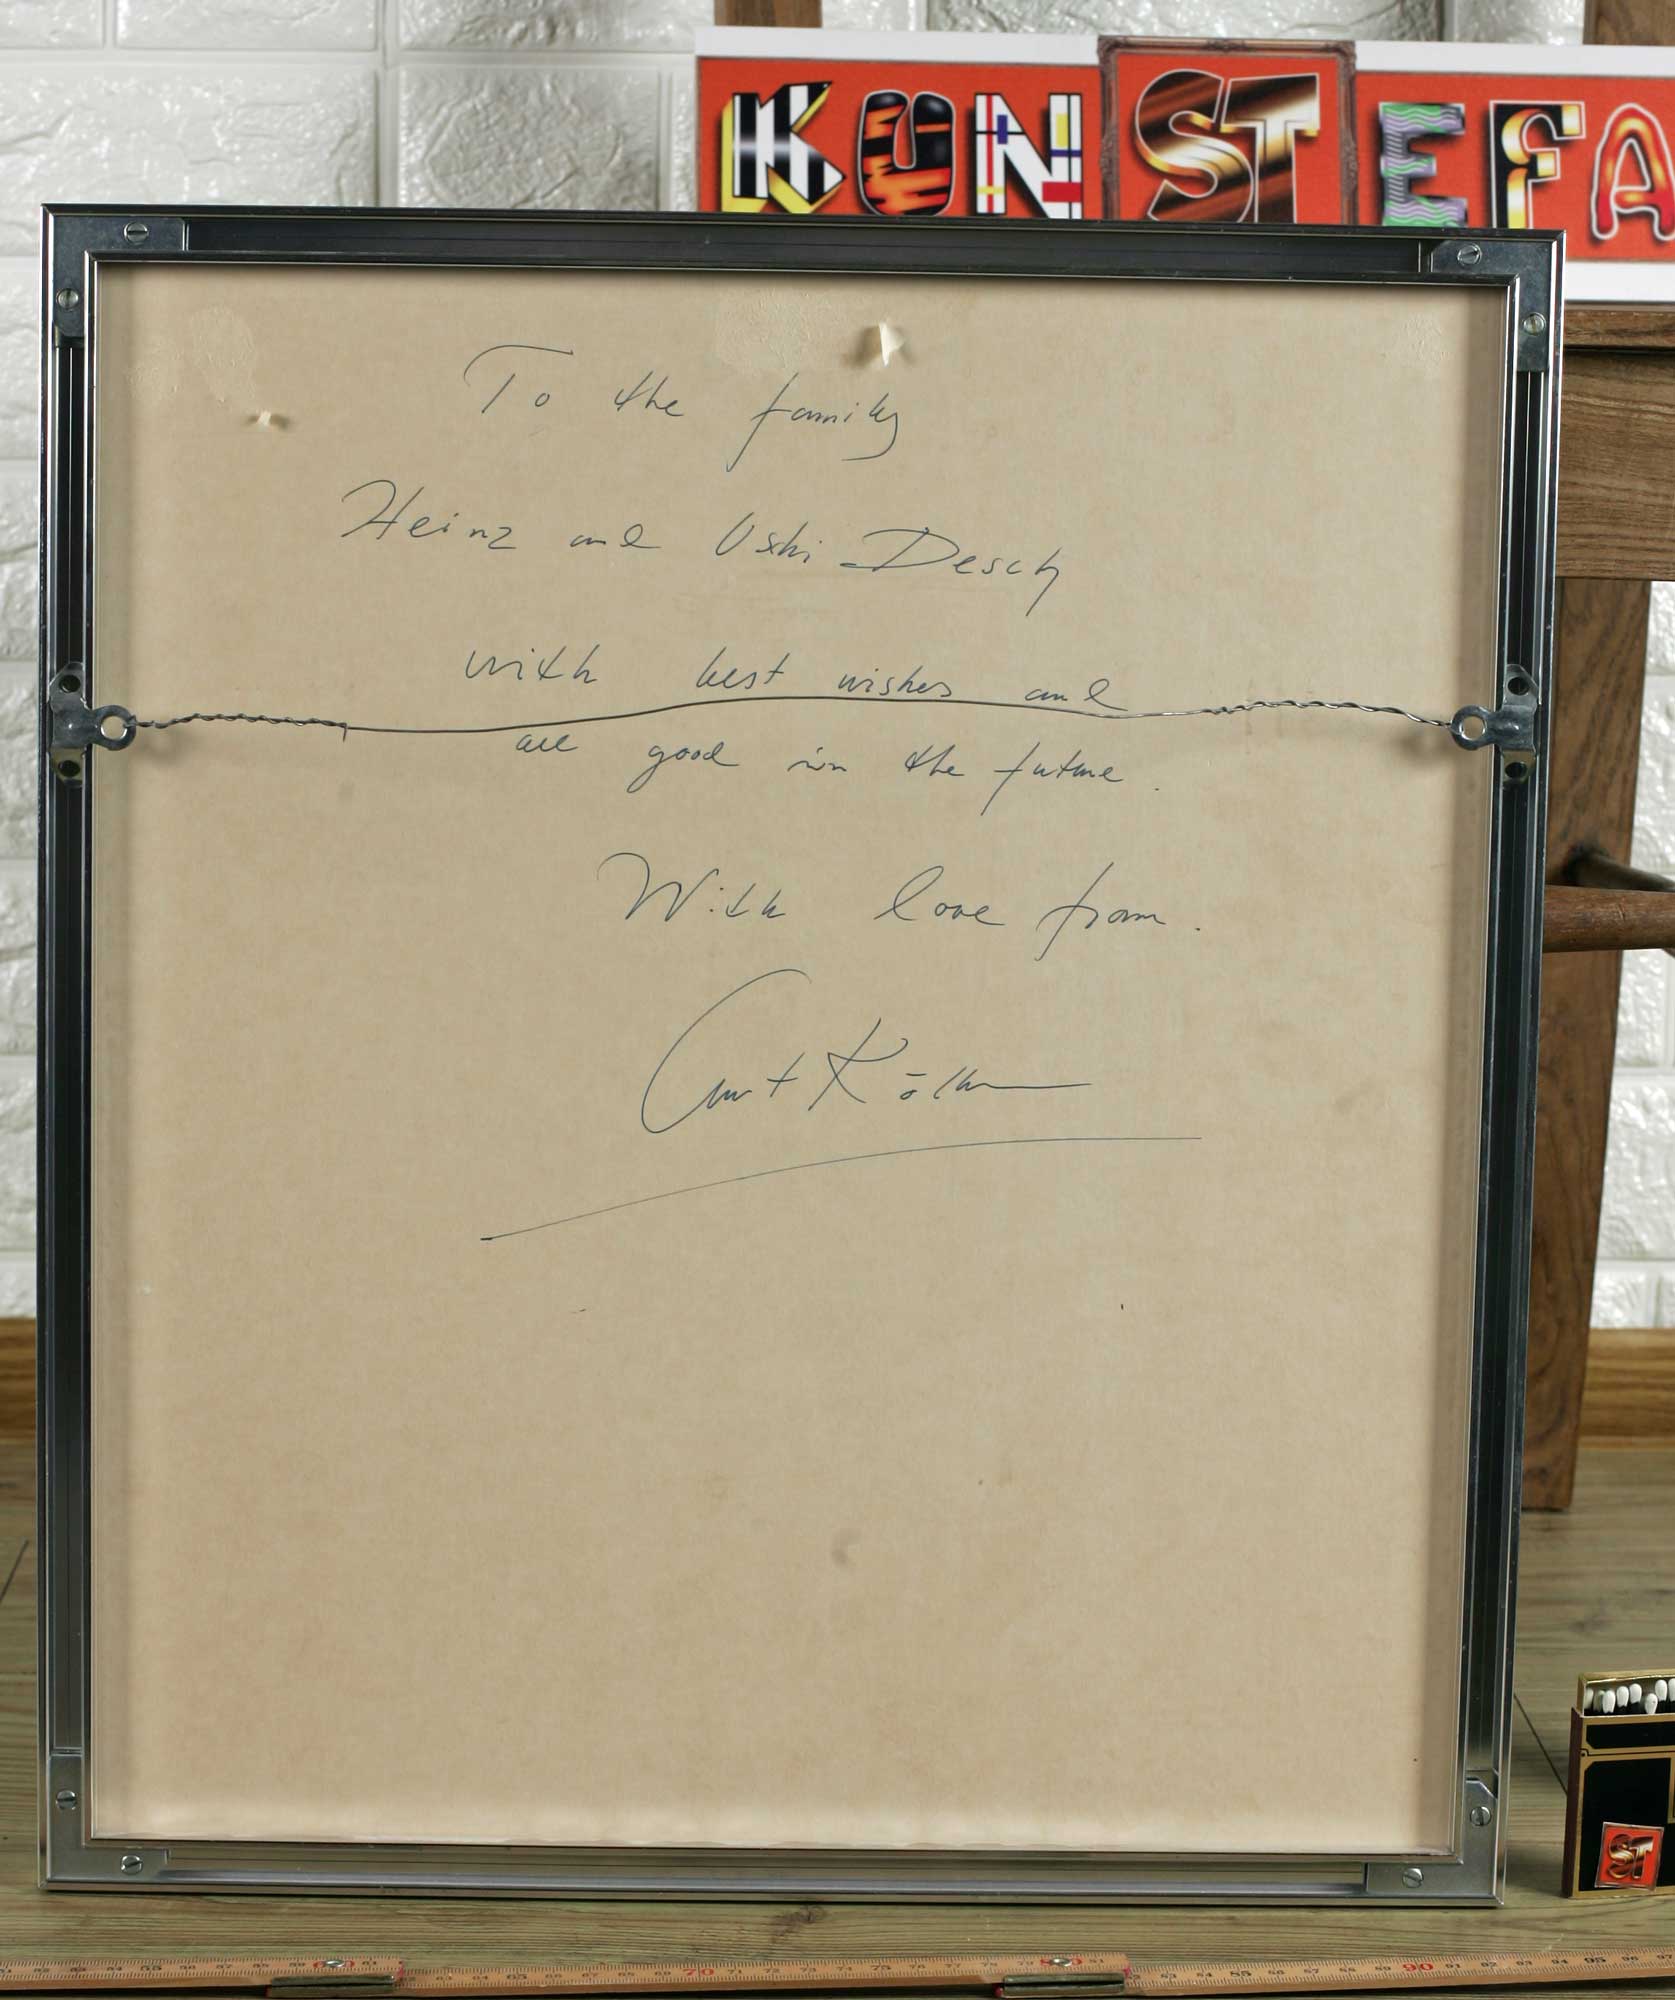 KUNSTEFA
To the family
Heinz and Uschi Desch
with best wishes and
all good in the future.
With love from.
Curt
ST
65 70 75 80 85 90 95